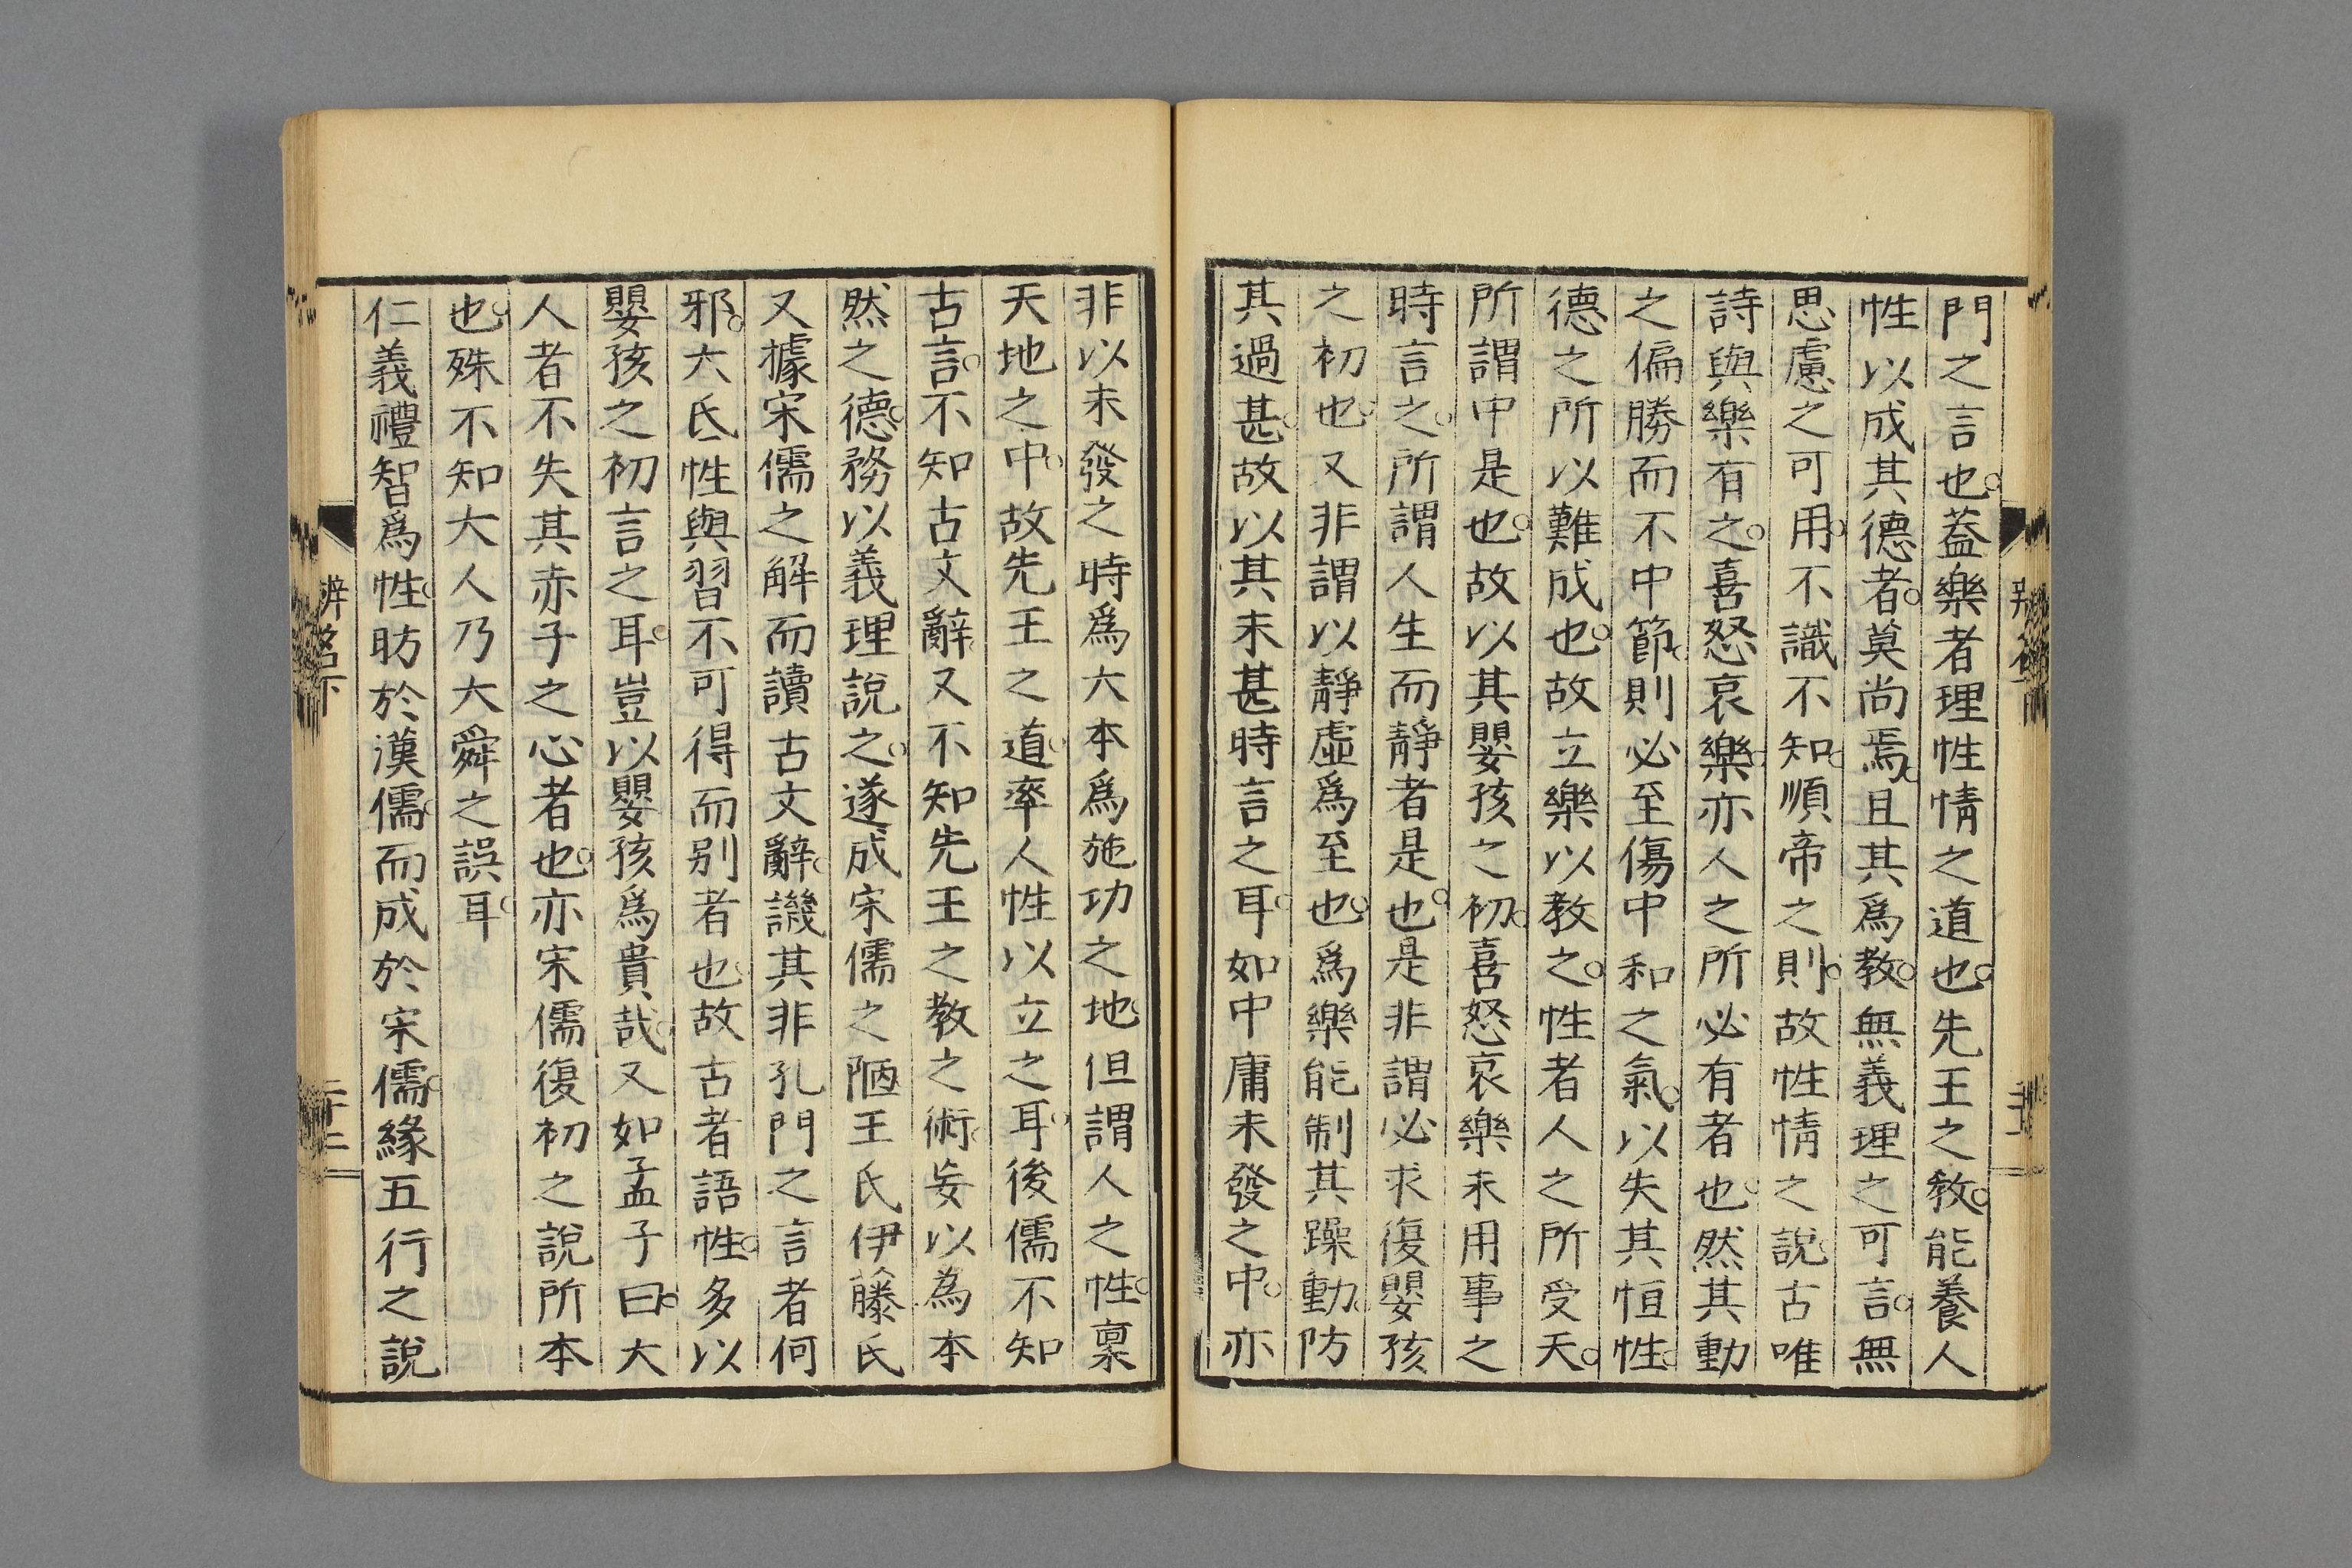 門之言也。蓋樂者理性情之道也。先王之敎。能養人
性以成其德者。莫尚焉。且其爲敎。無義理之可言。無
思慮之可用。不識不知。順帝之則。故性情之說。古唯
詩與樂有之。喜怒哀樂。亦人之所必有者也。然其動
之偏勝而不中節。則必至傷中和之氣。以失其恒性。
德之所以難成也。故立樂以敎之。性者人之所受天。
所謂中是也。故以其嬰孩之初。喜怒哀樂未用事之
時言之。所謂人生而靜者是也。是非謂必求復嬰孩
之初也。又非謂以靜虛爲至也。爲樂能制其躁動。防
其過甚。故以其未甚時言之耳。如中庸未發之中。亦
非以未發之時爲大本爲施功之地。但謂人之性。稟
天地之中。故先王之道。率人性以立之耳。後儒不知
古言。不知古文辭。又不知先王之敎之術。妄以為本
然之德。務以義理說之。遂成宋儒之陋。王氏伊藤氏
又據宋儒之解而讀古文辭。譏其非孔門之言者何
邪。大氐性與習不可得而別者也。故古者語性。多以
嬰孩之初言之耳。豈以嬰孩爲貴哉。又如孟子曰。大
人者不失其赤子之心者也。亦宋儒復初之說所本
也。殊不知大人乃大舜之誤耳。
仁義禮智爲性。昉於漢儒。而成於宋儒。緣五行之說
辨名下
二十二